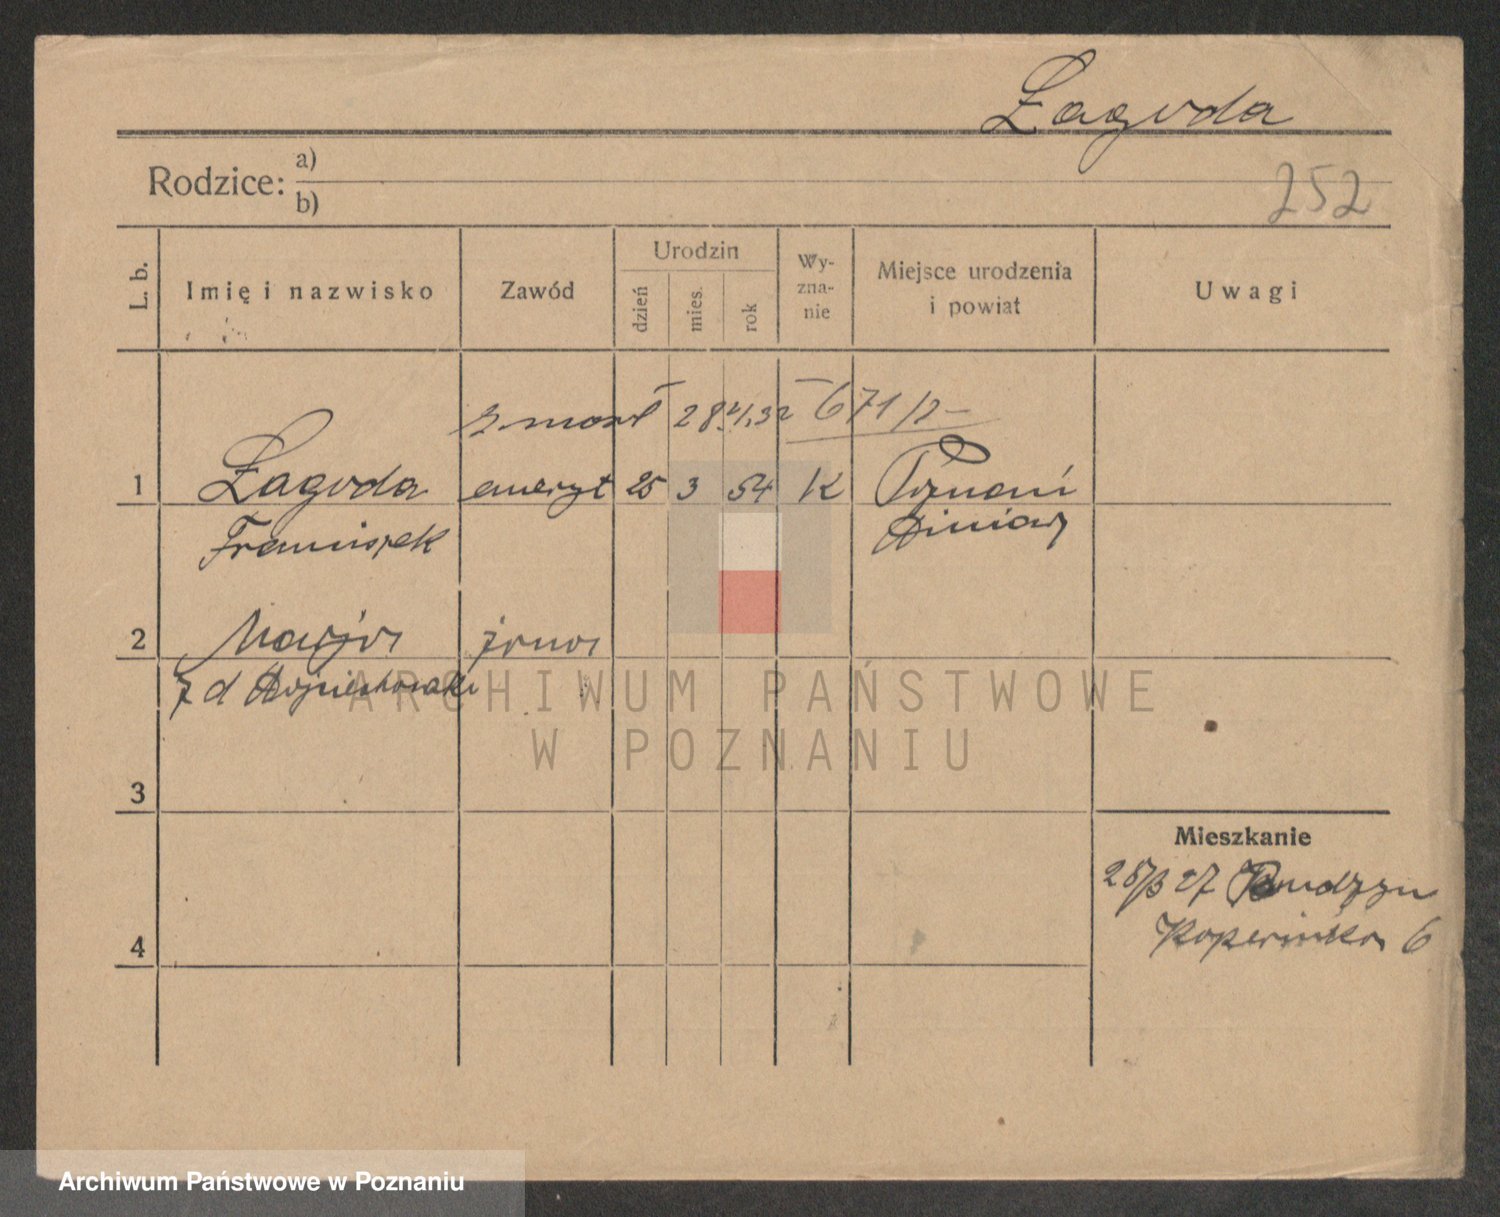 Łagoda
252
Rodzice: a)
b)
L. b. Imię i nazwisko Zawód Urodzin dzień mies. rok Wy-zna-nie Miejsce urodzenia i powiat Uwagi
zmarł 28 4. 32 671/2
1 Łagoda emeryt 25 3 54 K Poznań
Franciszek Winiary
2 Marja żona
z d Wojciechowska
ARCHIWUM PAŃSTWOWE
W POZNANIU
3
Mieszkanie
28/3 27 Budzyn
Kopernika 6
4
Archiwum Państwowe w Poznaniu